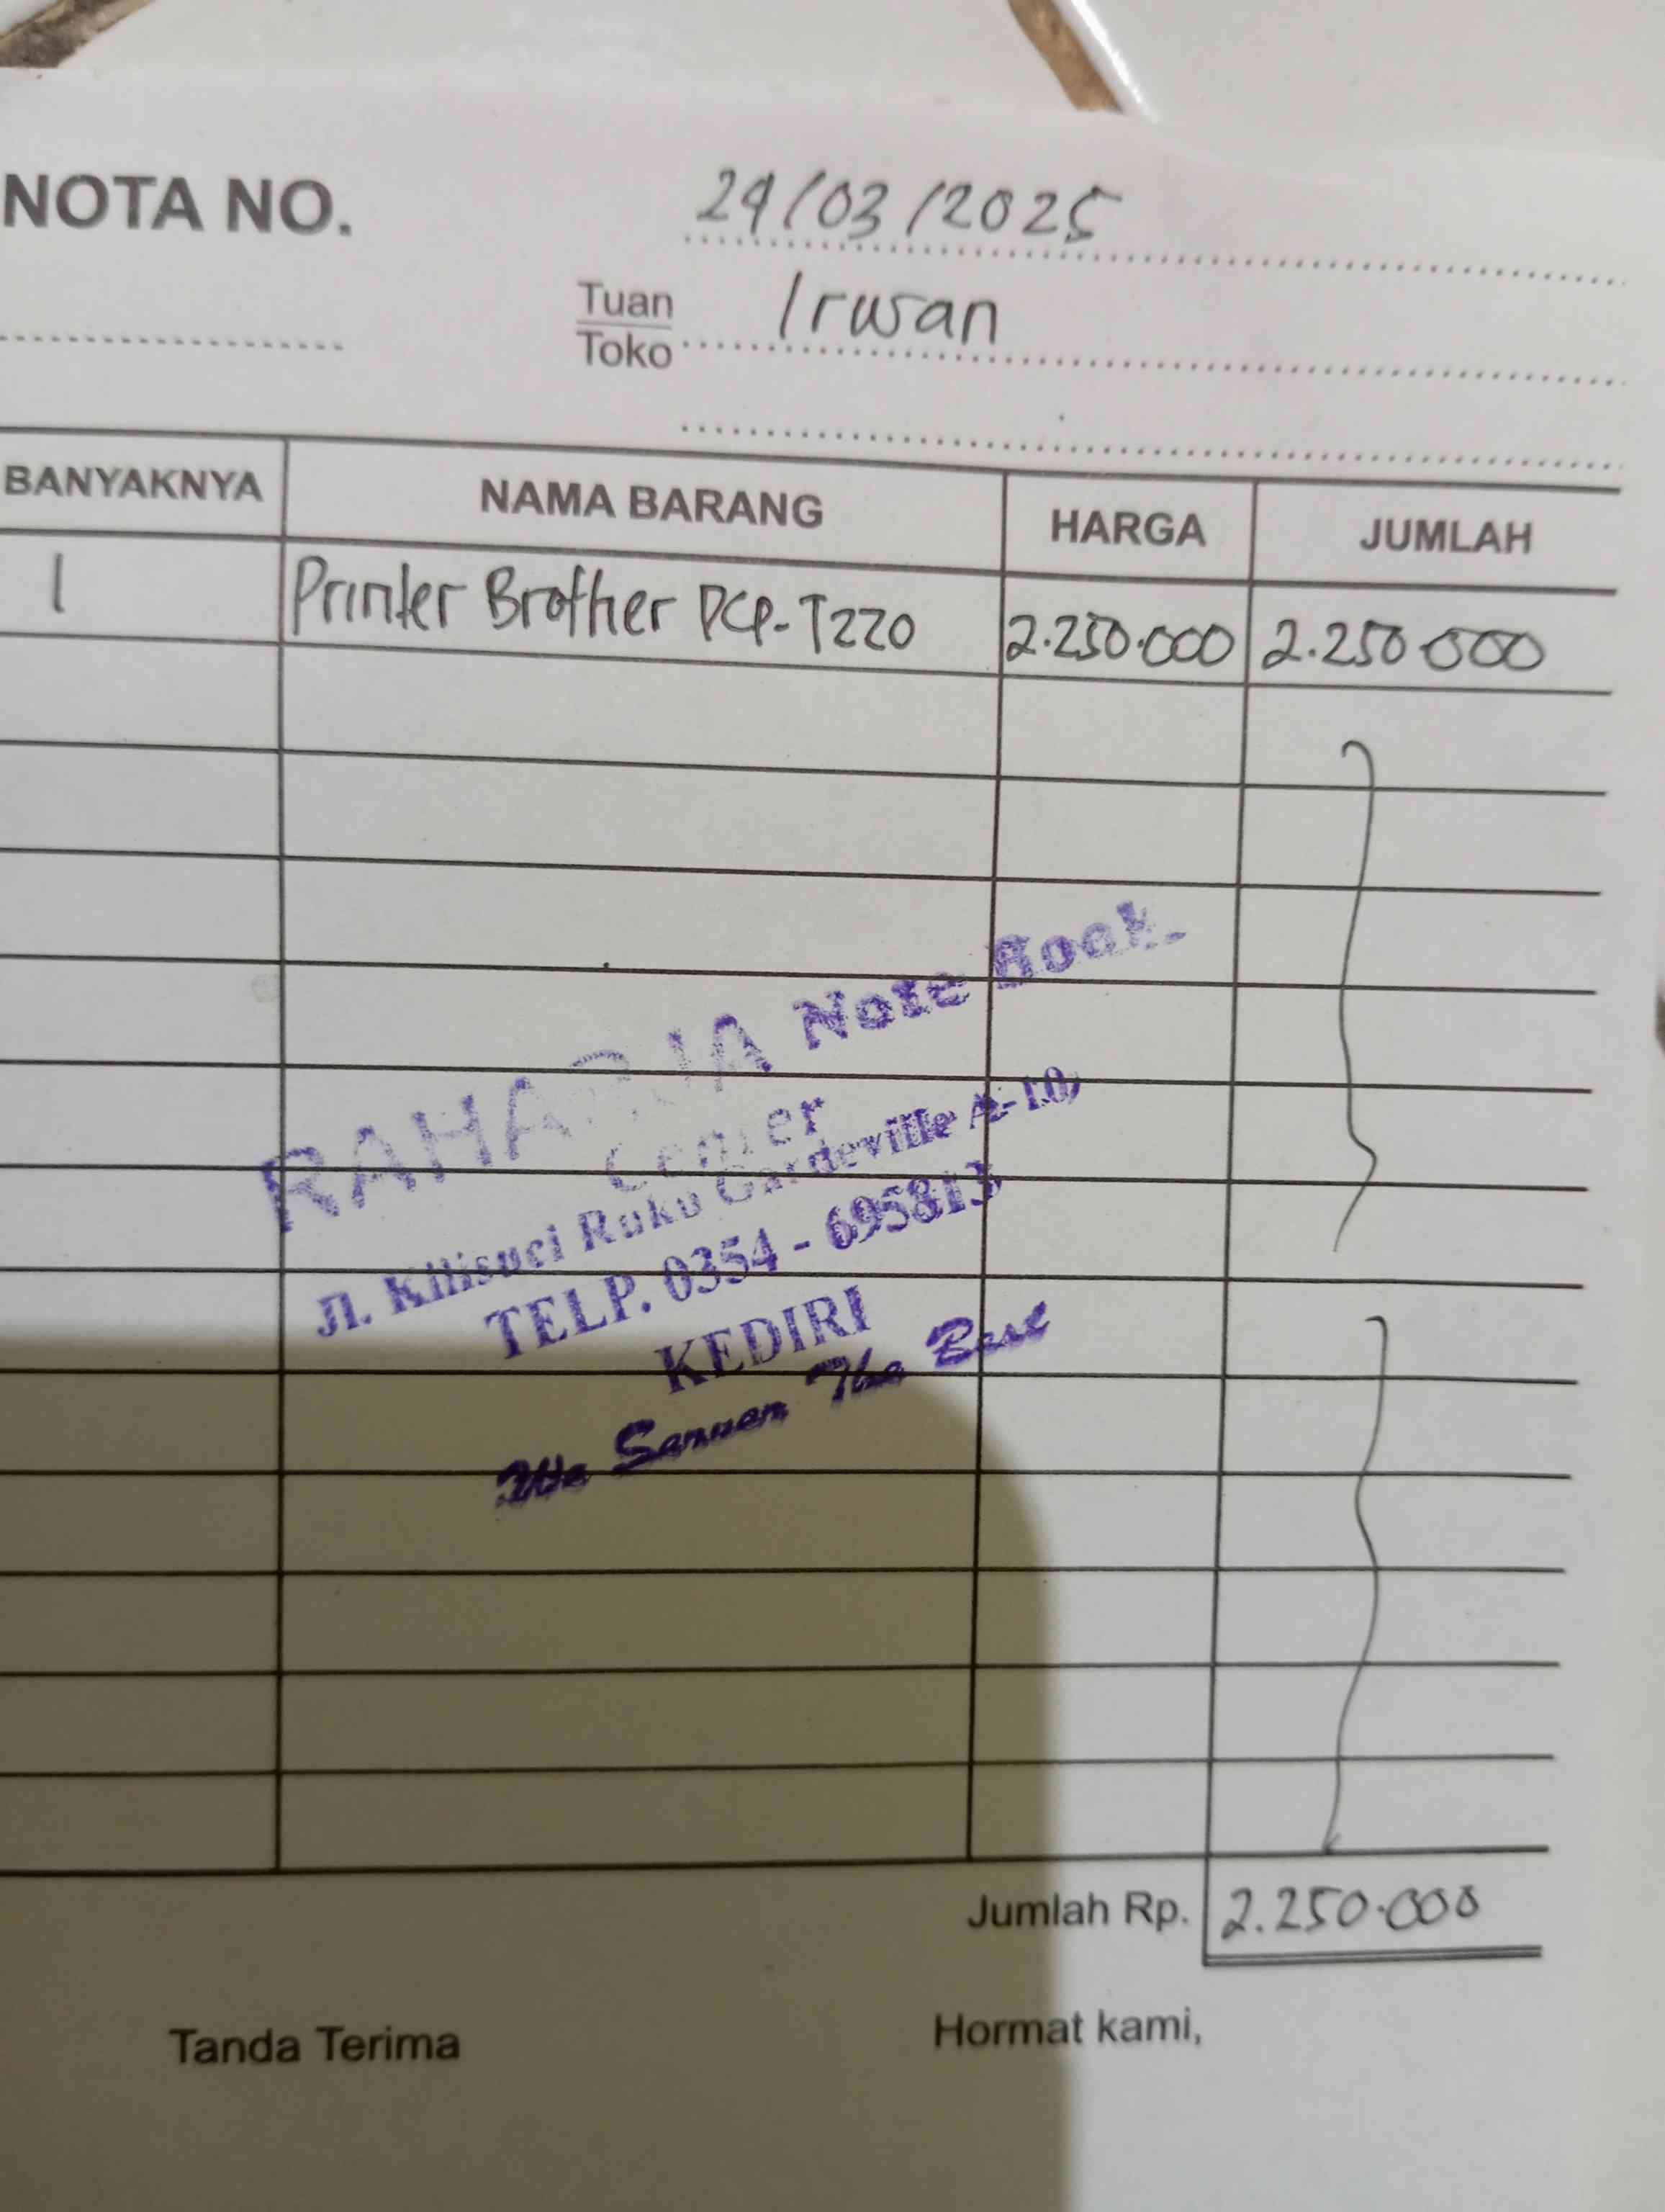 NOTA NO.
29/03/2025
Tuan
Toko
Irwan
BANYAKNYA NAMA BARANG HARGA JUMLAH
1 Printer Brother DCP-T220 2.250.000 2.250.000
RAHARJA Note Book
Center
Jl. Killisuci Ruko Gardeville A-10
TELP. 0354 - 695813
KEDIRI
The Best
Jumlah Rp. 2.250.000
Tanda Terima Hormat kami,